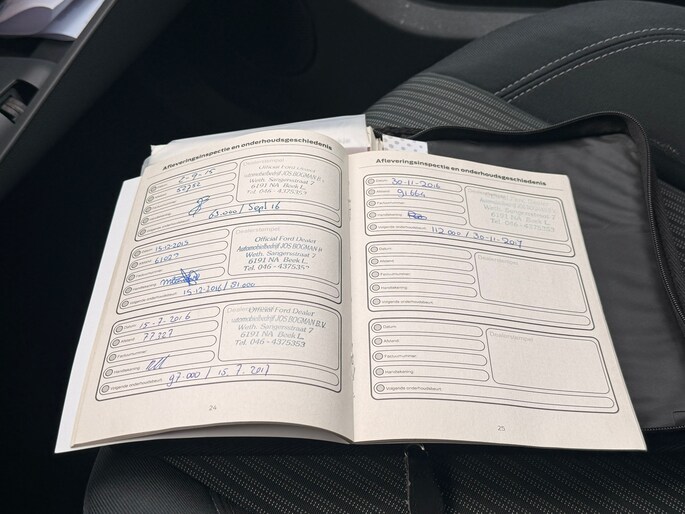 Afleveringsinspectie en onderhoudsgeschiedenis
Dealerstempel
7-9-15
52732
63.000 / Sept 16
Official Ford Dealer
Automobielbedrijf JOS BOGMAN B.V.
Weth. Sangersstraat 7
6191 NA Beek L.
Tel. 046-4375353
Datum 15-12-2015
Afstand 61023
Volgende onderhoudsbeurt 15-12-2016 / 81.000
Dealerstempel
Official Ford Dealer
Automobielbedrijf JOS BOGMAN B.V.
Weth. Sangersstraat 7
6191 NA Beek L.
Tel. 046-4375353
Datum 15-7-2016
Afstand 77327
Factuurnummer
Handtekening
Volgende onderhoudsbeurt 97.000 / 15.7.2017
Dealerstempel
Official Ford Dealer
Automobielbedrijf JOS BOGMAN B.V.
Weth. Sangersstraat 7
6191 NA Beek L.
Tel. 046-4375353
24
Afleveringsinspectie en onderhoudsgeschiedenis
Datum 30-11-2016
Afstand 91664
Factuurnummer
Handtekening
Volgende onderhoudsbeurt 112.000 / 30-11-2017
Dealerstempel
Official Ford Dealer
Automobielbedrijf JOS BOGMAN B.V.
Weth. Sangersstraat 7
6191 NA Beek L.
Tel. 046-4375353
Datum
Afstand
Factuurnummer
Handtekening
Volgende onderhoudsbeurt
Dealerstempel
Datum
Afstand
Factuurnummer
Handtekening
Volgende onderhoudsbeurt
Dealerstempel
25